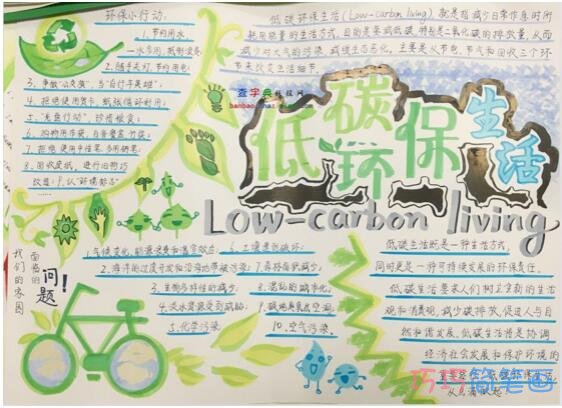 环保小行动:
1.节约用水,
一水多用,
2.随手关灯,节约用电
3.争做"公交族",当"自行车英雄";
4.拒绝使用贺卡,纸张循环利用;
5."光盘行动",珍惜粮食;
6.购物用布袋,自备餐盒、竹筷;
7.拒绝使用中性笔,多用钢笔;
8.回收废纸,进行旧物巧
改造;9.认"环境标志"
低碳环保生活(Low-carbon living)就是指减少日常作息时所
耗用能量的生活方式,目的是要减低碳,特别是二氧化碳的排放量,从而
减少对大气的污染,减缓生态恶化,主要是从节电、节气和回收三个环
节来改变生活细节。
查字典
低碳环保生活
Low-carbon living
我们的家园
面临的
问题!
1.气候变化,能源浪费和温室效应;
2.海洋的过度开发和沿海地带被污染;
3.生物多样性的减少;
4.淡水资源受到威胁;
5.化学污染
6.土壤遭到破坏;
7.森林面积减少;
8.混乱的城市化;
9.极地臭氧层空洞;
10.空气污染.
低碳生活既是一种生活方式,
同时更是一种可持续发展的环保责任。
低碳生活要求人们树立全新的生活
观和消费观,减少碳排放,促进人与自
然和谐发展。低碳生活将是协调
经济社会发展和保护环境的
重要
巧巧简笔画